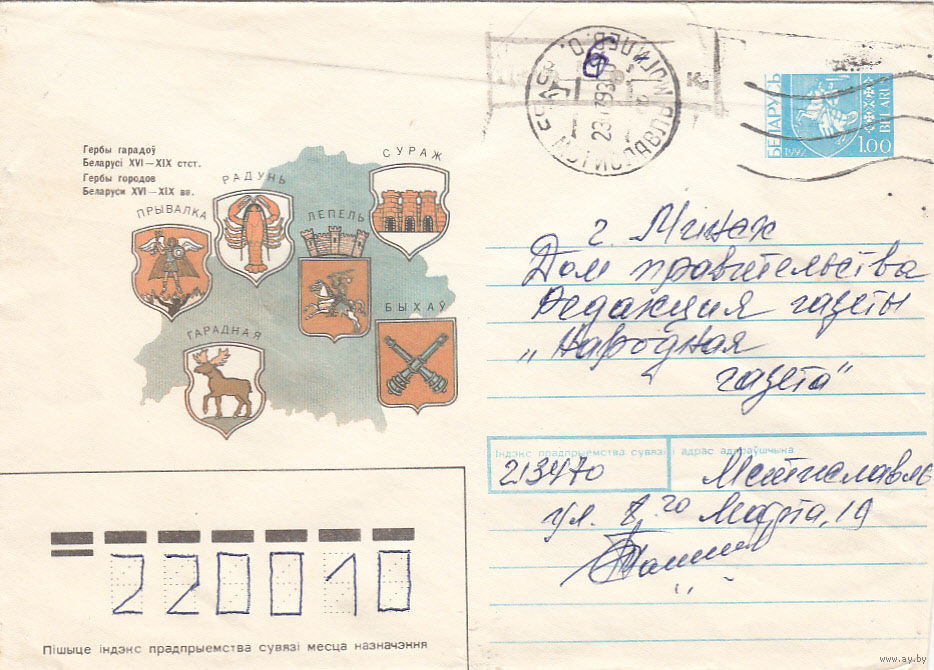 Гербы гарадоў
Беларусі XVI–XIX стст.
Гербы городов
Беларуси XVI–XIX вв.
ПРЫВАЛКА
РАДУНЬ
ЛЕПЕЛЬ
СУРАЖ
ГАРАДНАЯ
БЫХАЎ
БЕЛАРУСЬ
1992
1.00
BELARUS
г. Минск
Дом правительства
Редакция газеты
„Народная
газета"
Індэкс прадпрыемства сувязі і адрас адпраўшчыка
213470
Мстиславль
ул. 8го Марта, 19
220010
Пішыце індэкс прадпрыемства сувязі месца назначэння
www.ay.by